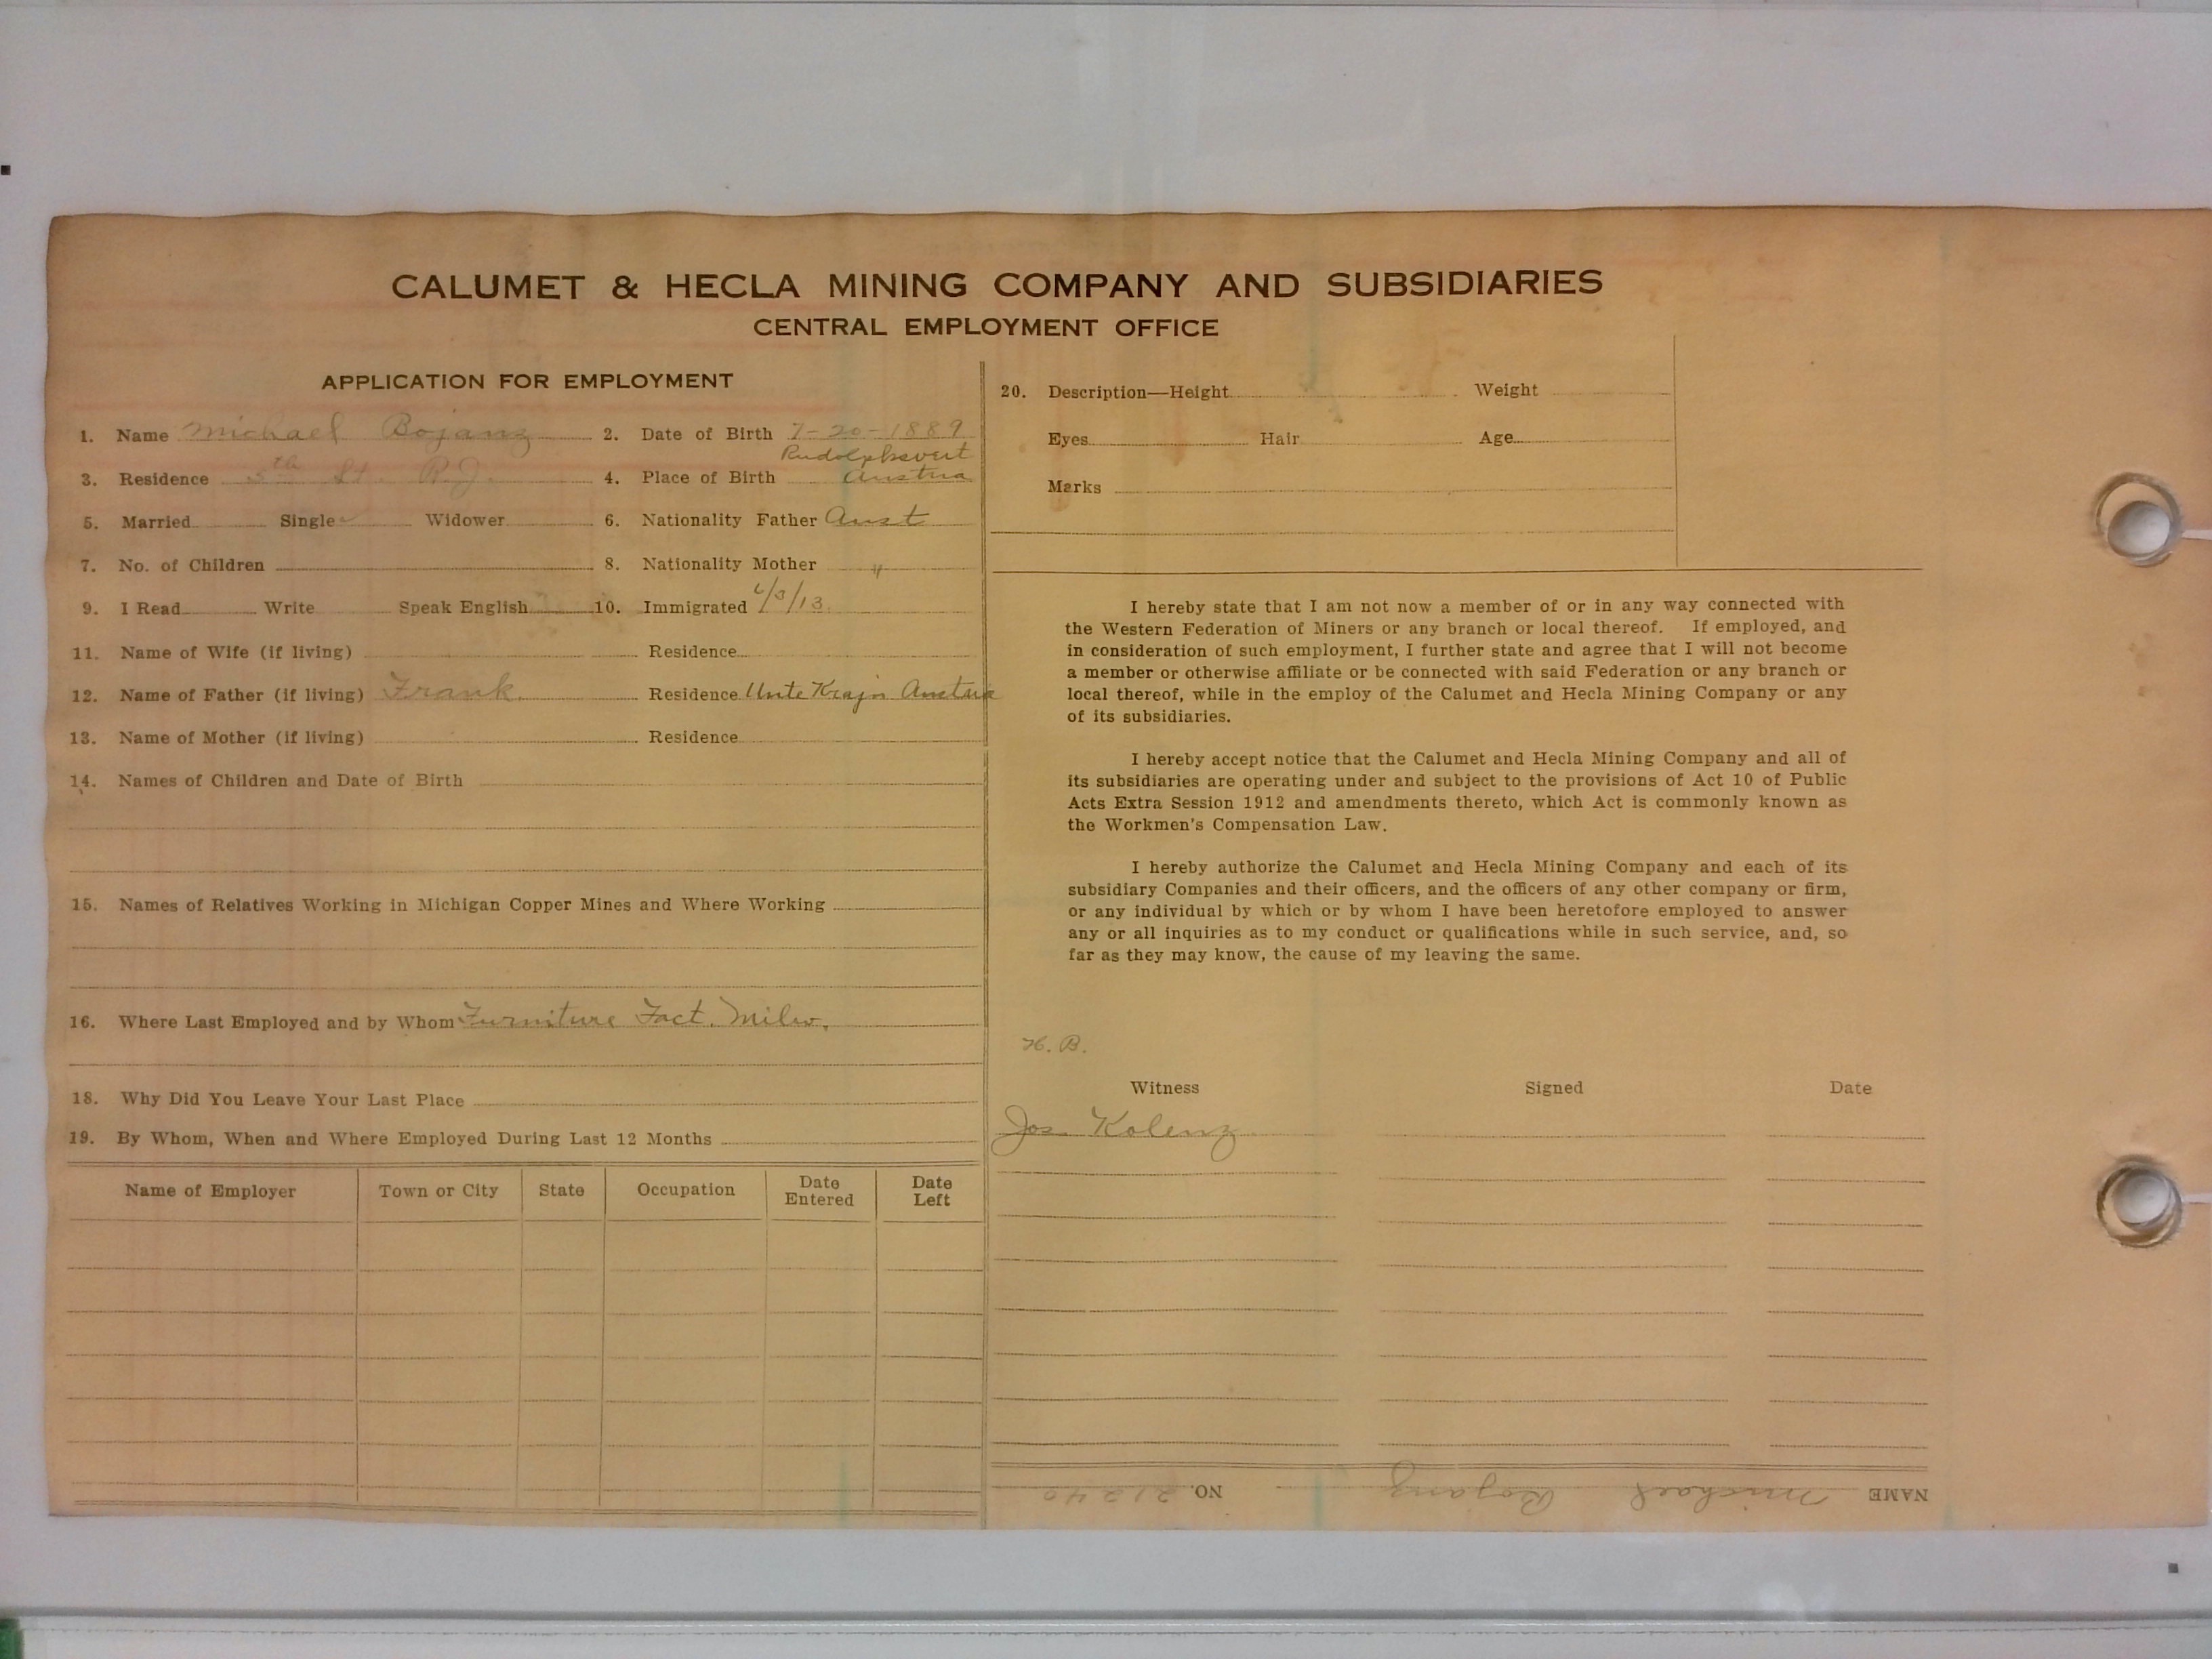 CALUMET & HECLA MINING COMPANY AND SUBSIDIARIES
CENTRAL EMPLOYMENT OFFICE
APPLICATION FOR EMPLOYMENT
1. Name Michael Bojanz 2. Date of Birth 7-20-1889
Rudolphswert
3. Residence 5th St. R.J. 4. Place of Birth Austria
5. Married Single ✓ Widower 6. Nationality Father Aust
7. No. of Children 8. Nationality Mother "
9. I Read Write Speak English 10. Immigrated 6/3/13
11. Name of Wife (if living) Residence
12. Name of Father (if living) Frank. Residence Unte Krajn Austria
13. Name of Mother (if living) Residence
14. Names of Children and Date of Birth
15. Names of Relatives Working in Michigan Copper Mines and Where Working
16. Where Last Employed and by Whom Furniture Fact. Milw.
18. Why Did You Leave Your Last Place
19. By Whom, When and Where Employed During Last 12 Months
Name of Employer Town or City State Occupation Date Entered Date Left
20. Description—Height Weight
Eyes Hair Age
Marks
I hereby state that I am not now a member of or in any way connected with
the Western Federation of Miners or any branch or local thereof. If employed, and
in consideration of such employment, I further state and agree that I will not become
a member or otherwise affiliate or be connected with said Federation or any branch or
local thereof, while in the employ of the Calumet and Hecla Mining Company or any
of its subsidiaries.
I hereby accept notice that the Calumet and Hecla Mining Company and all of
its subsidiaries are operating under and subject to the provisions of Act 10 of Public
Acts Extra Session 1912 and amendments thereto, which Act is commonly known as
the Workmen's Compensation Law.
I hereby authorize the Calumet and Hecla Mining Company and each of its
subsidiary Companies and their officers, and the officers of any other company or firm,
or any individual by which or by whom I have been heretofore employed to answer
any or all inquiries as to my conduct or qualifications while in such service, and, so
far as they may know, the cause of my leaving the same.
H. B.
Witness Signed Date
Jos. Kolenz
NAME Michael Bojanz NO. 21240